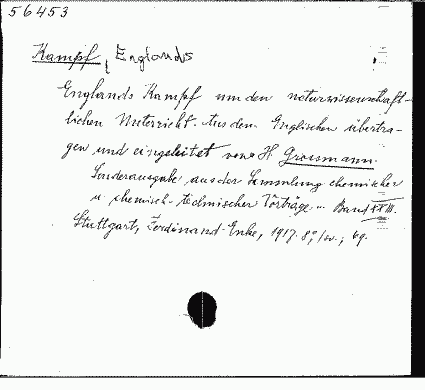 56453
Kampf, Englands
Englands Kampf um den naturwissenschaft-
lichen Unterricht. Aus dem Englischen übertra-
gen und eingeleitet von H. Grossmann.
Sonderausgabe aus der Sammlung chemischer
u. chemisch-technischer Vorträge... Band XXIII.
Stuttgart, Ferdinand Enke, 1917. 8°, 69.